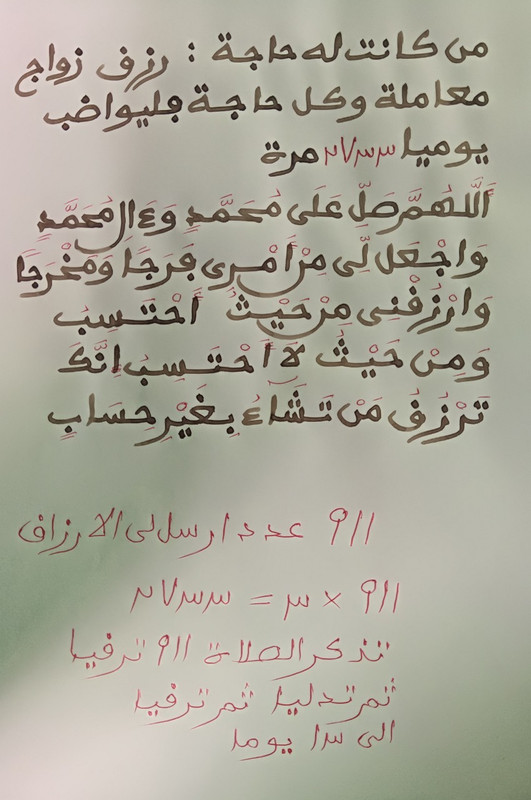 من كانت له حاجة : رزف زواج
معاملة وكل حاجة فليواضب
يوميا ٢٧٣٣ مرة
أَللَّهُمَّ صَلِّ عَلَى مُحَمَّدٍ وَءَالِ مُحَمَّدٍ
وَاجْعَل لِّى مِنْ أَمْرِى فَرَجًا وَمَخْرَجًا
وَارْزُفْنِى مِنْ حَيْثُ أَحْتَسِبُ
وَمِنْ حَيْثُ لَا أَحْتَسِبُ إِنَّكَ
تَرْزُفُ مَنْ تَشَآءُ بِغَيْرِ حِسَابٍ
٩١١ عدد ارسل لى الارزاف
٩١١ × ٣ = ٢٧٣٣
تذكر الصلاة ٩١١ ترفيا
ثم تدليا ثم ترفيا
الى ١٣ يوما